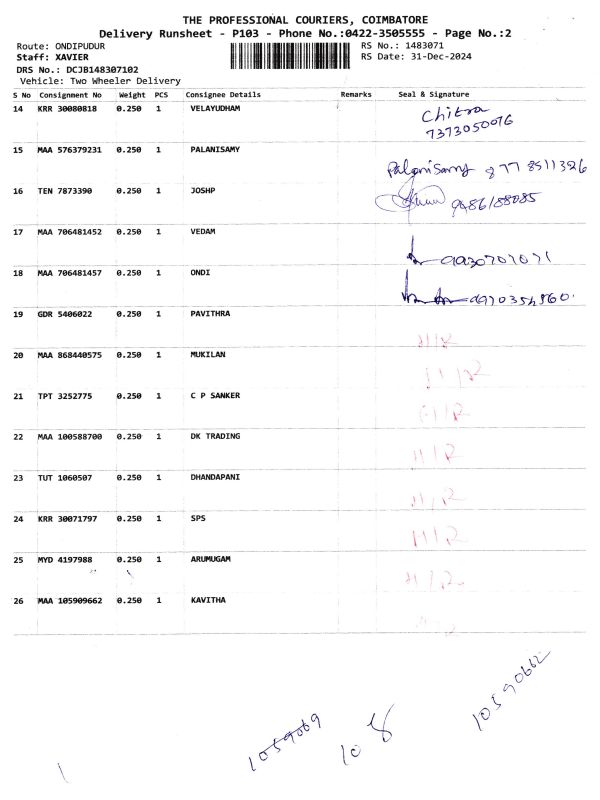 THE PROFESSIONAL COURIERS, COIMBATORE
Delivery Runsheet - P103 - Phone No.:0422-3505555 - Page No.:2
Route: ONDIPUDUR RS No.: 1483071
Staff: XAVIER RS Date: 31-Dec-2024
DRS No.: DCJB148307102
Vehicle: Two Wheeler Delivery
S No Consignment No Weight PCS Consignee Details Remarks Seal & Signature
14 KRR 30080818 0.250 1 VELAYUDHAM Chitra
7373050076
15 MAA 576379231 0.250 1 PALANISAMY
Palanisamy 877 8511326
16 TEN 7873390 0.250 1 JOSHP 9486188085
17 MAA 706481452 0.250 1 VEDAM
18 MAA 706481457 0.250 1 ONDI
19 GDR 5406022 0.250 1 PAVITHRA
H/R
20 MAA 868440575 0.250 1 MUKILAN
H/R
21 TPT 3252775 0.250 1 C P SANKER
H/R
22 MAA 100588700 0.250 1 DK TRADING
H/R
23 TUT 1060507 0.250 1 DHANDAPANI
H/R
24 KRR 30071797 0.250 1 SPS
H/R
25 MYD 4197988 0.250 1 ARUMUGAM
H/R
26 MAA 105909662 0.250 1 KAVITHA
10590662
1059069
108